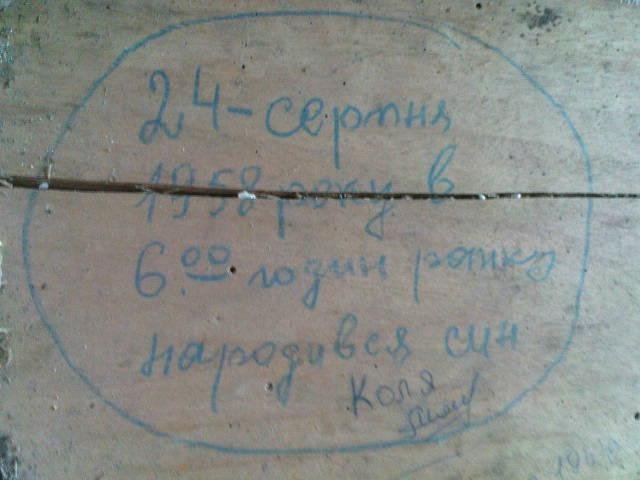 24-серпня
1958 року в
6.00 годин ранку
народився син
Коля